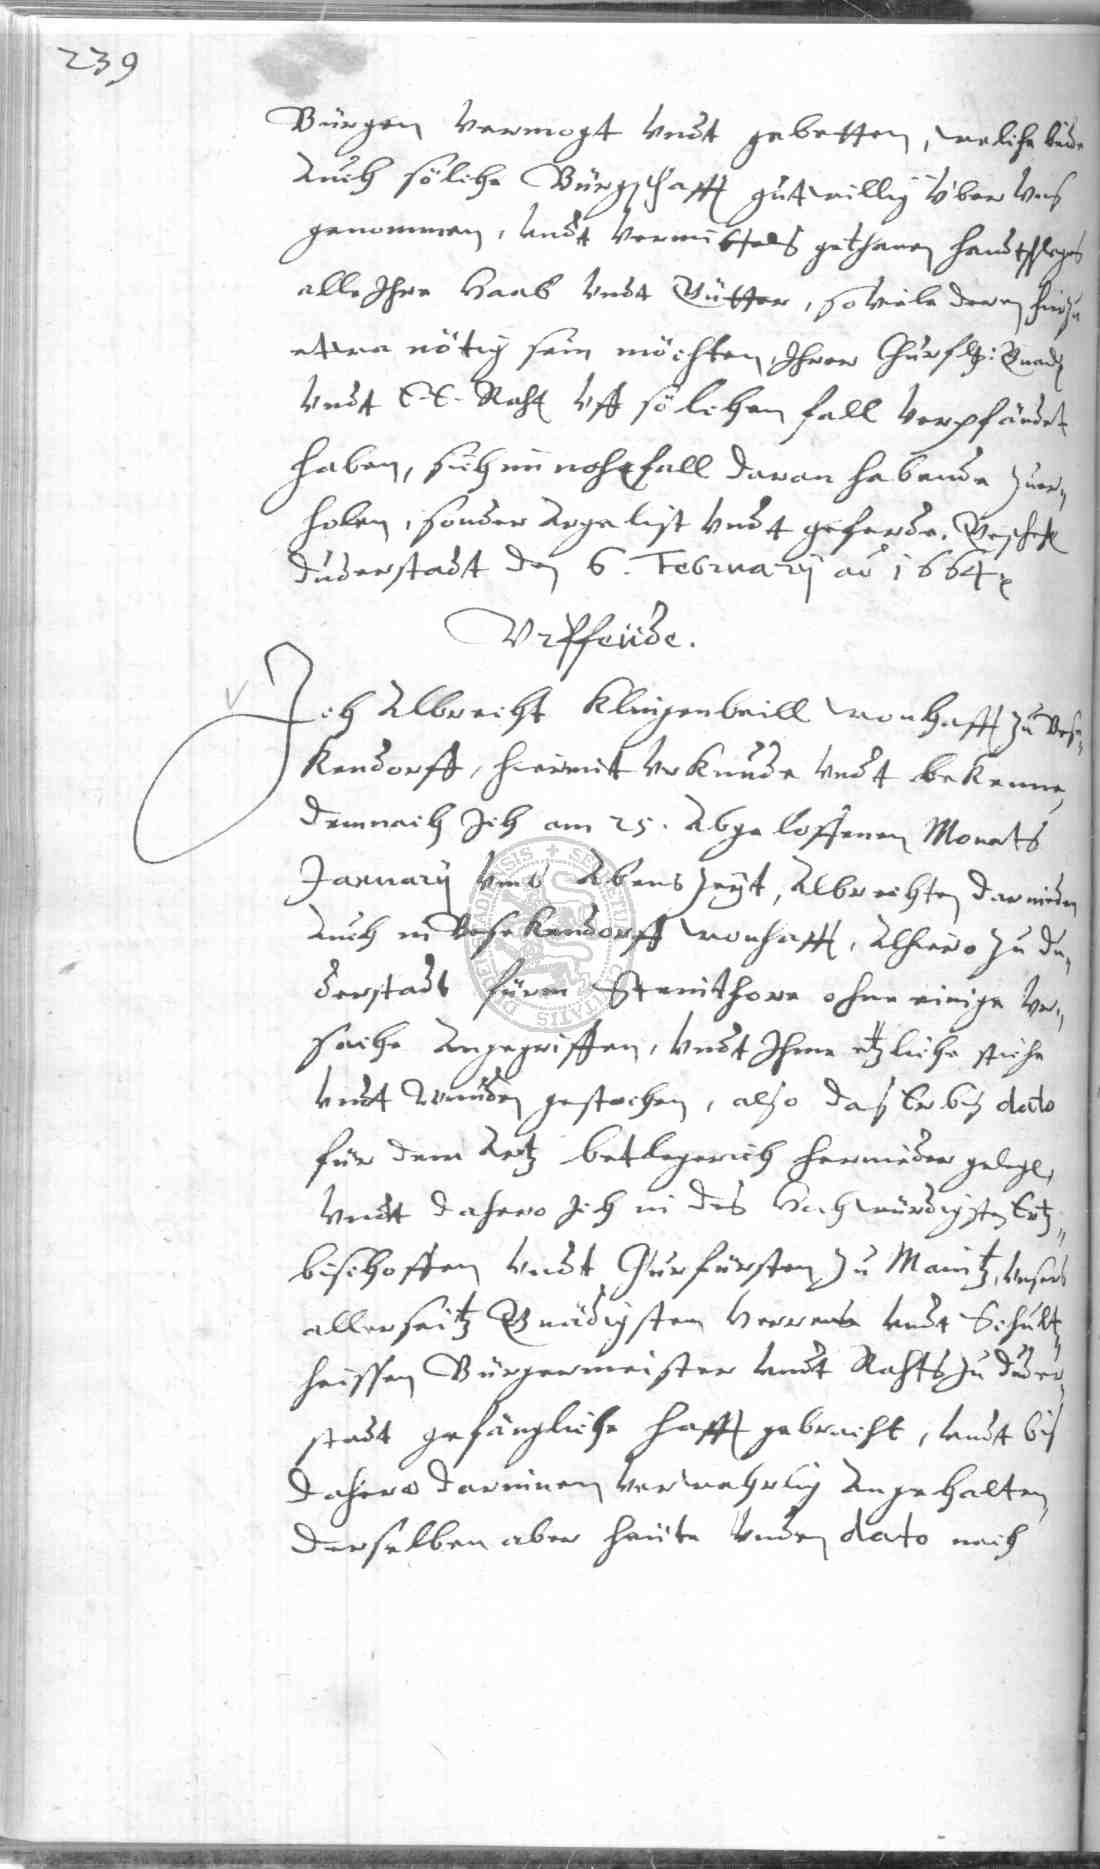 239
Bürgen vermogt undt gebetten, weliche beide
Auch söliche Bürgschafft gutwillig über uns
genommen, undt vermittels gethanen handtschlages
alle Ihre Haab undt Gütter, soviele deren hirzu
etwa nötig sein möchten, Ihrer Churfl: Gnad
undt E. E. Raht uff sölichen fall verpfändet
haben, sich im nohtfall daran habende zuer„
holen, sonder argelist undt geferde. Gescheh
Duderstadt den 6. February ao 1664
Urffeüde.
Ich Albrecht Klingenbeill wonhafft zu Ese„
Kendorff, hiermit Urkunde undt beKenne,
demnach Ich am 25. Abgeloffenen Monats
January umb Abens Zeyt, Albrechten
Auch in EseKendorff wonhafft, Alhiero zu Du„
derstadt fürm Steinthore ohne einige Ur„
sache Angegriffen, undt Ihme etzliche stiche
undt Wunden gestochen, also daß Er biß dato
für dem Artz betlegerich hernieder gelegt,
undt dahero Ich in des Hochwürdigsten Ertz„
bischoffen undt Churfürsten zu Maintz, unsers
allerseitz Gnädigsten Herren undt Schult„
heissen Bürgermeister undt Rahts zu Duder„
stadt gefängliche hafft gebracht, undt biß
dahero darinnen verwahrlig Angehalten,
derselben aber heüte unden dato nach